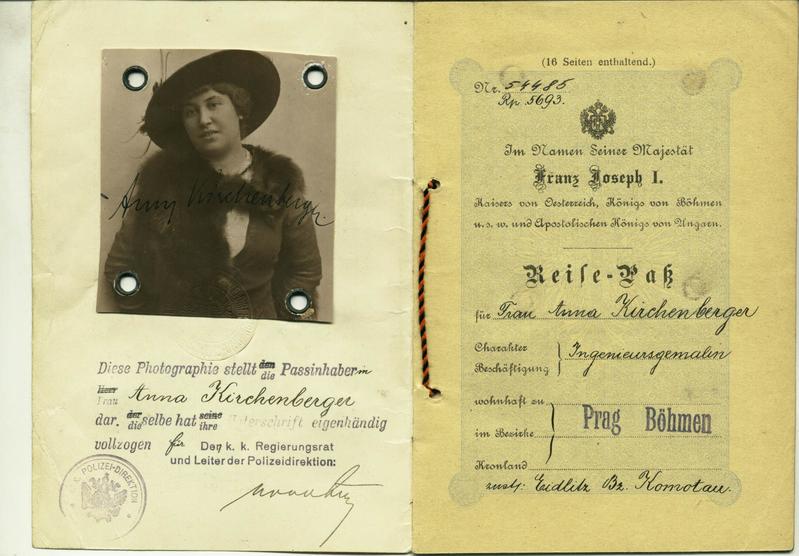 Anny Kirchenberger
Diese Photographie stellt den die Passinhaberin
Herr Frau Anna Kirchenberger
dar. der die selbe hat seine ihre Unterschrift eigenhändig
vollzogen für Den k. k. Regierungsrat
und Leiter der Polizeidirektion:
K. POLIZEI-DIREKTION
(16 Seiten enthaltend.)
Nr. 54485
Rp 5693.
Im Namen Seiner Majestät
Franz Joseph I.
Kaisers von Oesterreich, Königs von Böhmen
u. s. w. und Apostolischen Königs von Ungarn.
Reise-Paß
für Frau Anna Kirchenberger
Charakter
Beschäftigung } Ingenieursgemalin
wohnhaft zu
im Bezirke } Prag Böhmen
Kronland
zust: Eidlitz Bz. Komotau.